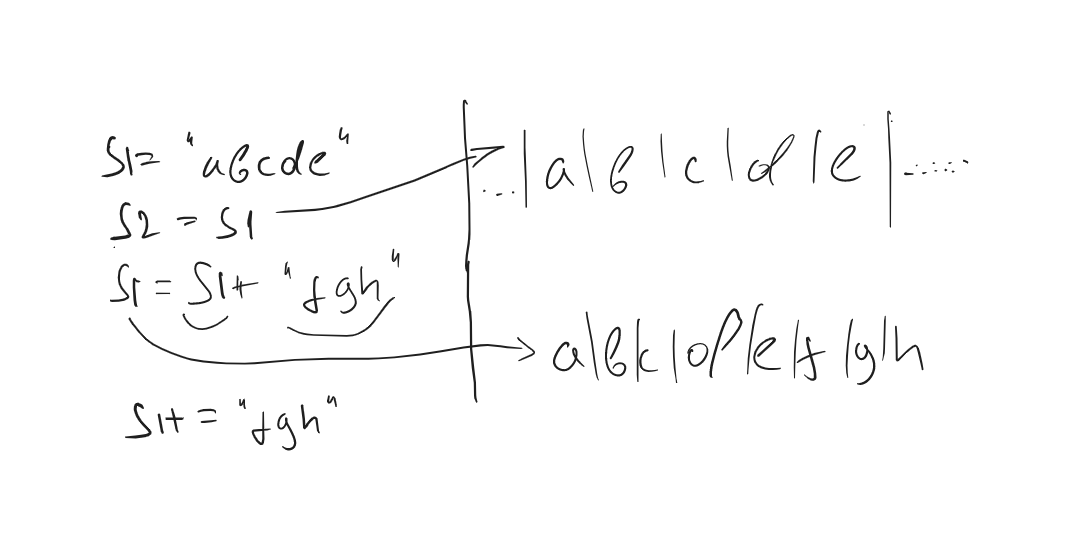 S1= "abcde"
S2 = S1
S1 = S1+ "fgh"
S1+ = "fgh"
...|a|b|c|d|e|......
a|b|c|d|e|f|g|h